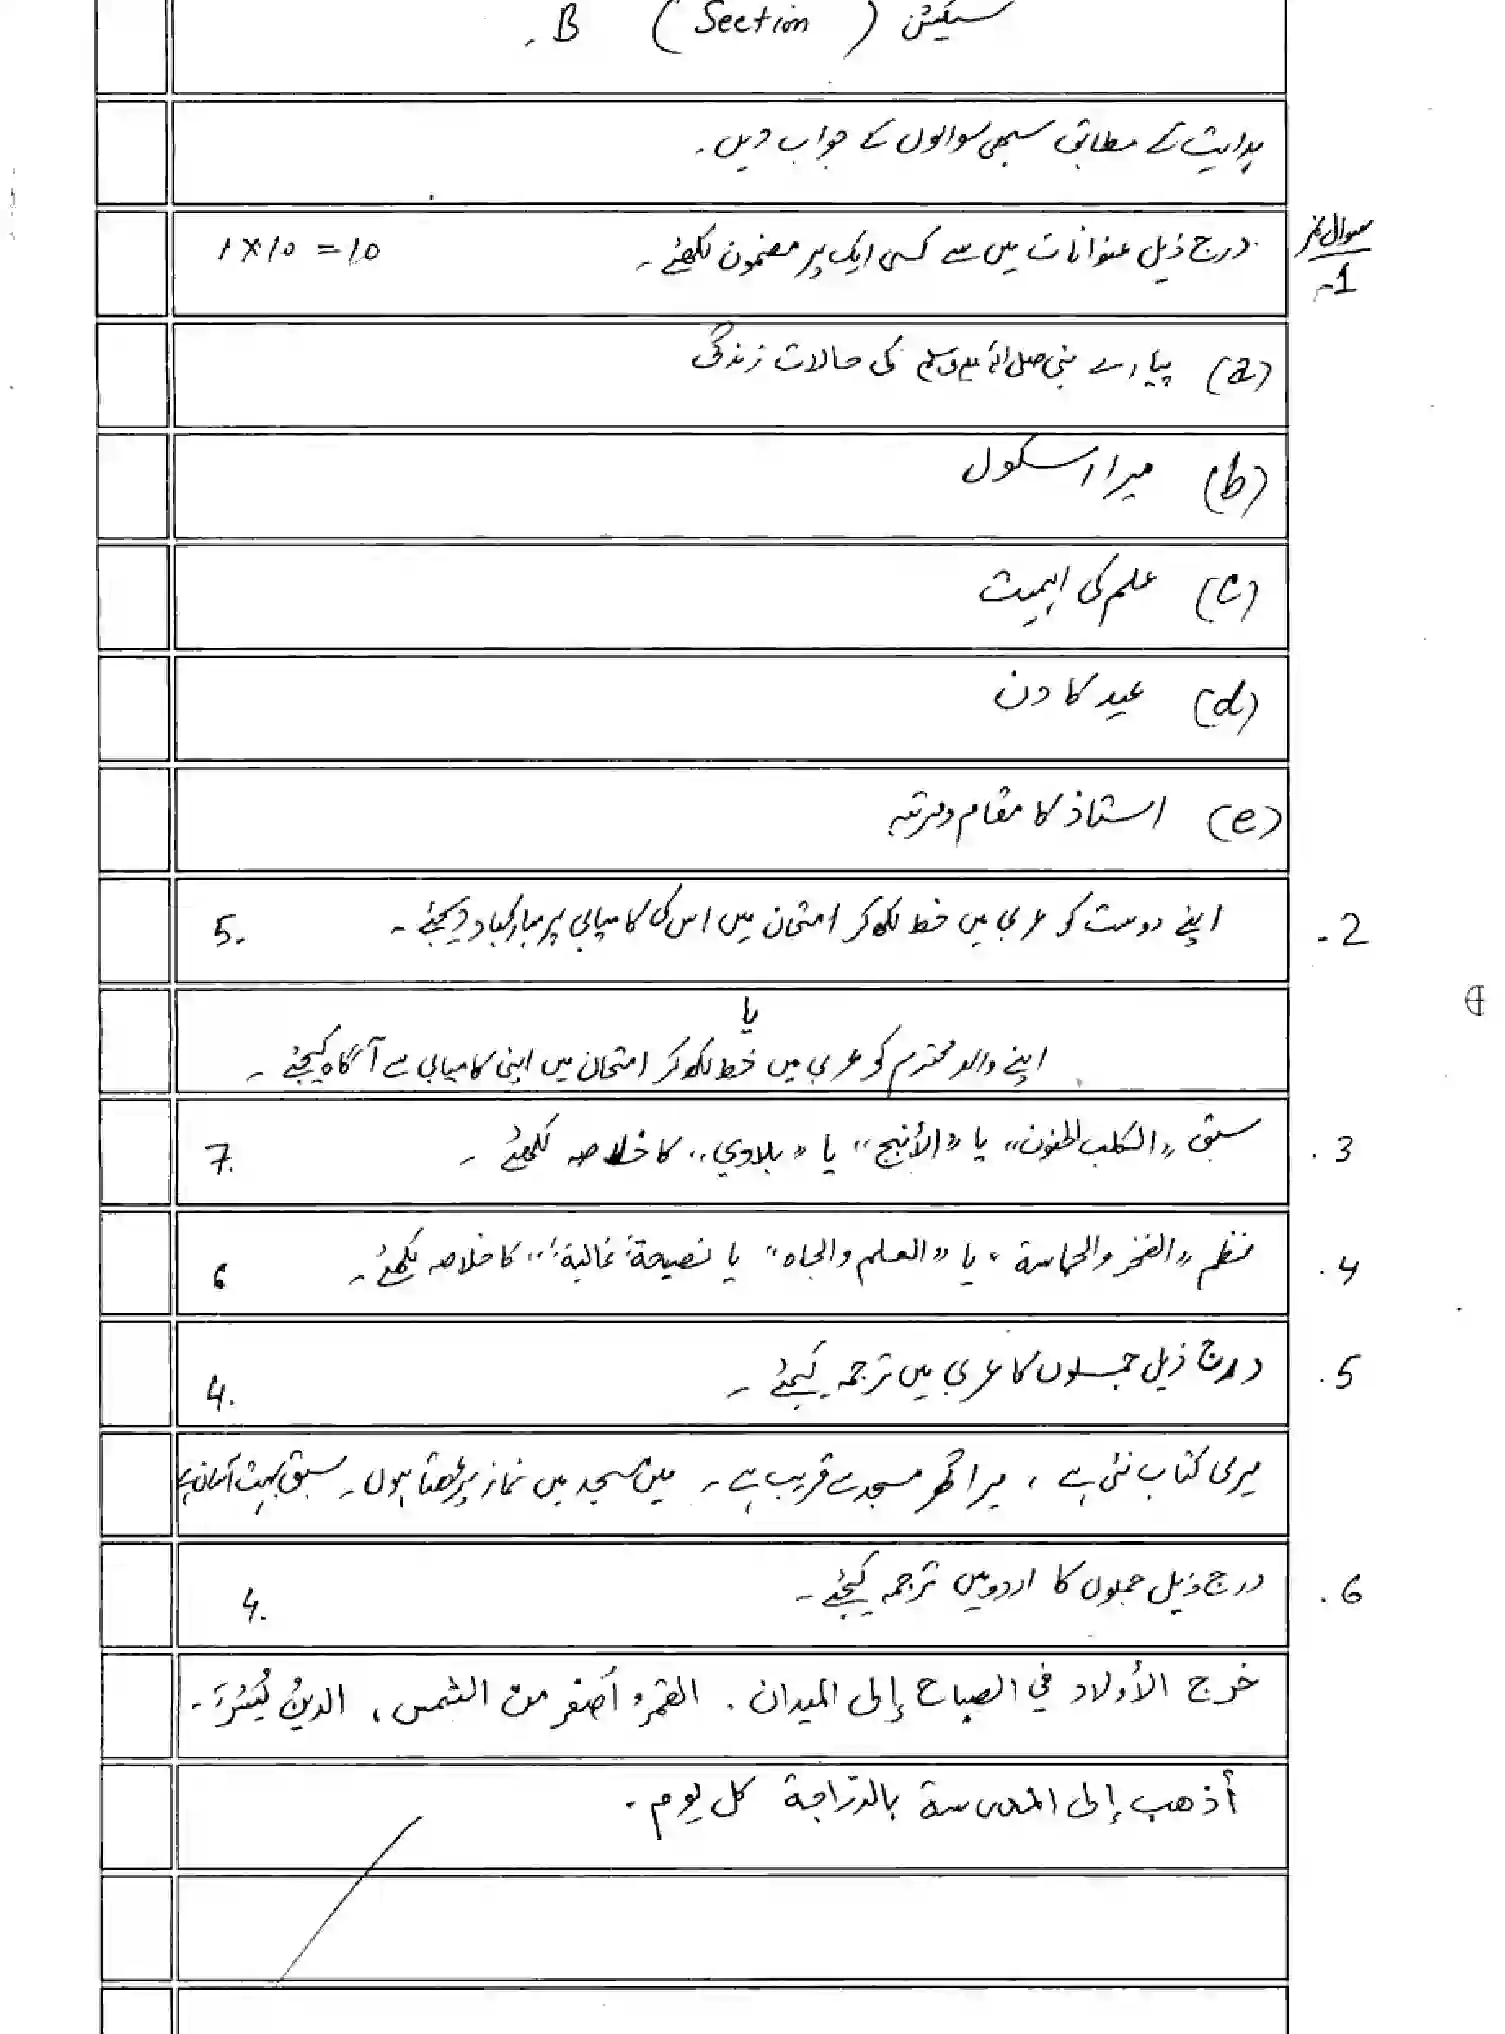 سیکشن (Section) B۔
ہدایت کے مطابق سبھی سوالوں کے جواب دیں۔
سوال نمبر 1۔ درج ذیل عنوانات میں سے کسی ایک پر مضمون لکھئے۔ 1×10=10
(a) پیارے نبی صلی اللہ علیہ وسلم کی حالات زندگی
(b) میرا اسکول
(c) علم کی اہمیت
(d) عید کا دن
(e) استاذ کا مقام ومرتبہ
2۔ اپنے دوست کو عربی میں خط لکھ کر امتحان میں اس کی کامیابی پر مبارکباد دیجئے۔ 5.
یا
اپنے والد محترم کو عربی میں خط لکھ کر امتحان میں اپنی کامیابی سے آگاہ کیجئے۔
3. سبق "الکلب الحنون" یا "الأنبج" یا "بلادي" کا خلاصہ لکھئے۔ 7.
4. نظم "الفخر والحماسة" یا "العلم والجاه" یا نصيحة غالية" کا خلاصہ لکھئے۔ 6
5. درج ذیل جملوں کا عربی میں ترجمہ کیجئے۔ 4.
میری کتاب نئی ہے، میرا گھر مسجد سے قریب ہے۔ میں مسجد میں نماز پڑھتا ہوں۔ سبق بہت آسان ہے
6. درج ذیل جملوں کا اردو میں ترجمہ کیجئے۔ 4.
خرج الأولاد في الصباح إلى الميدان. القمر أصغر من الشمس، الدينُ يُسْرٌ۔
أذهب إلى المدرسة بالدّراجة كل يوم.